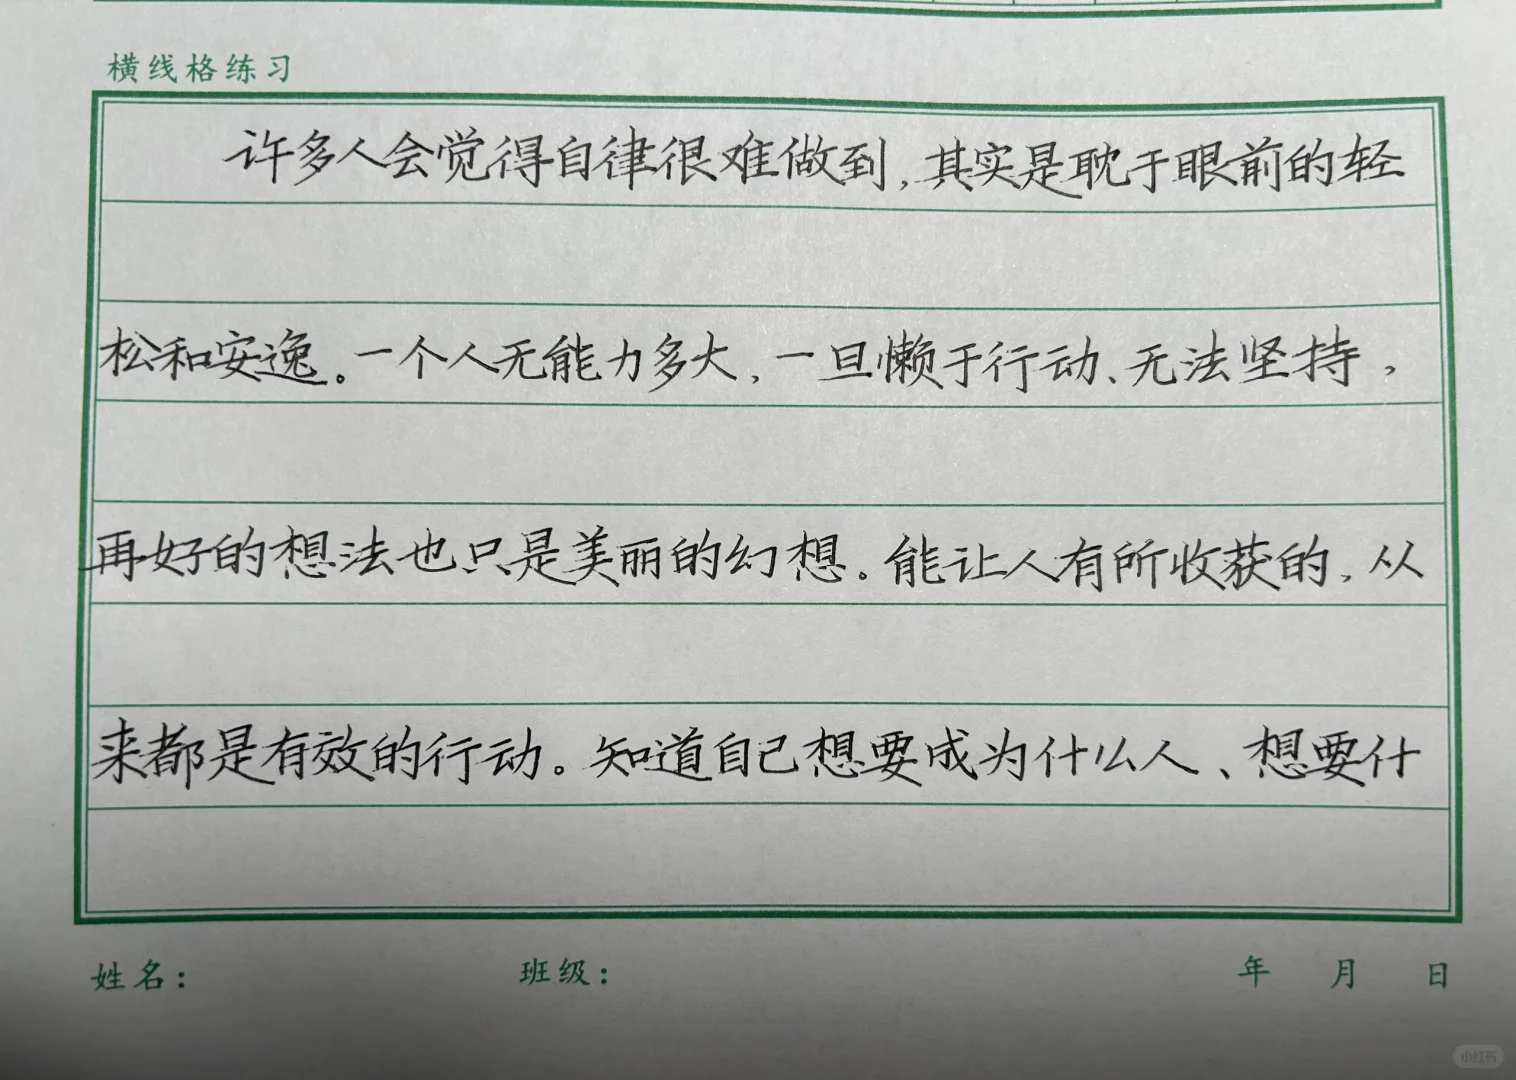 横线格练习
许多人会觉得自律很难做到,其实是耽于眼前的轻
松和安逸。一个人无能力多大,一旦懒于行动、无法坚持,
再好的想法也只是美丽的幻想。能让人有所收获的,从
来都是有效的行动。知道自己想要成为什么人、想要什
姓名: 班级: 年 月 日
小红书